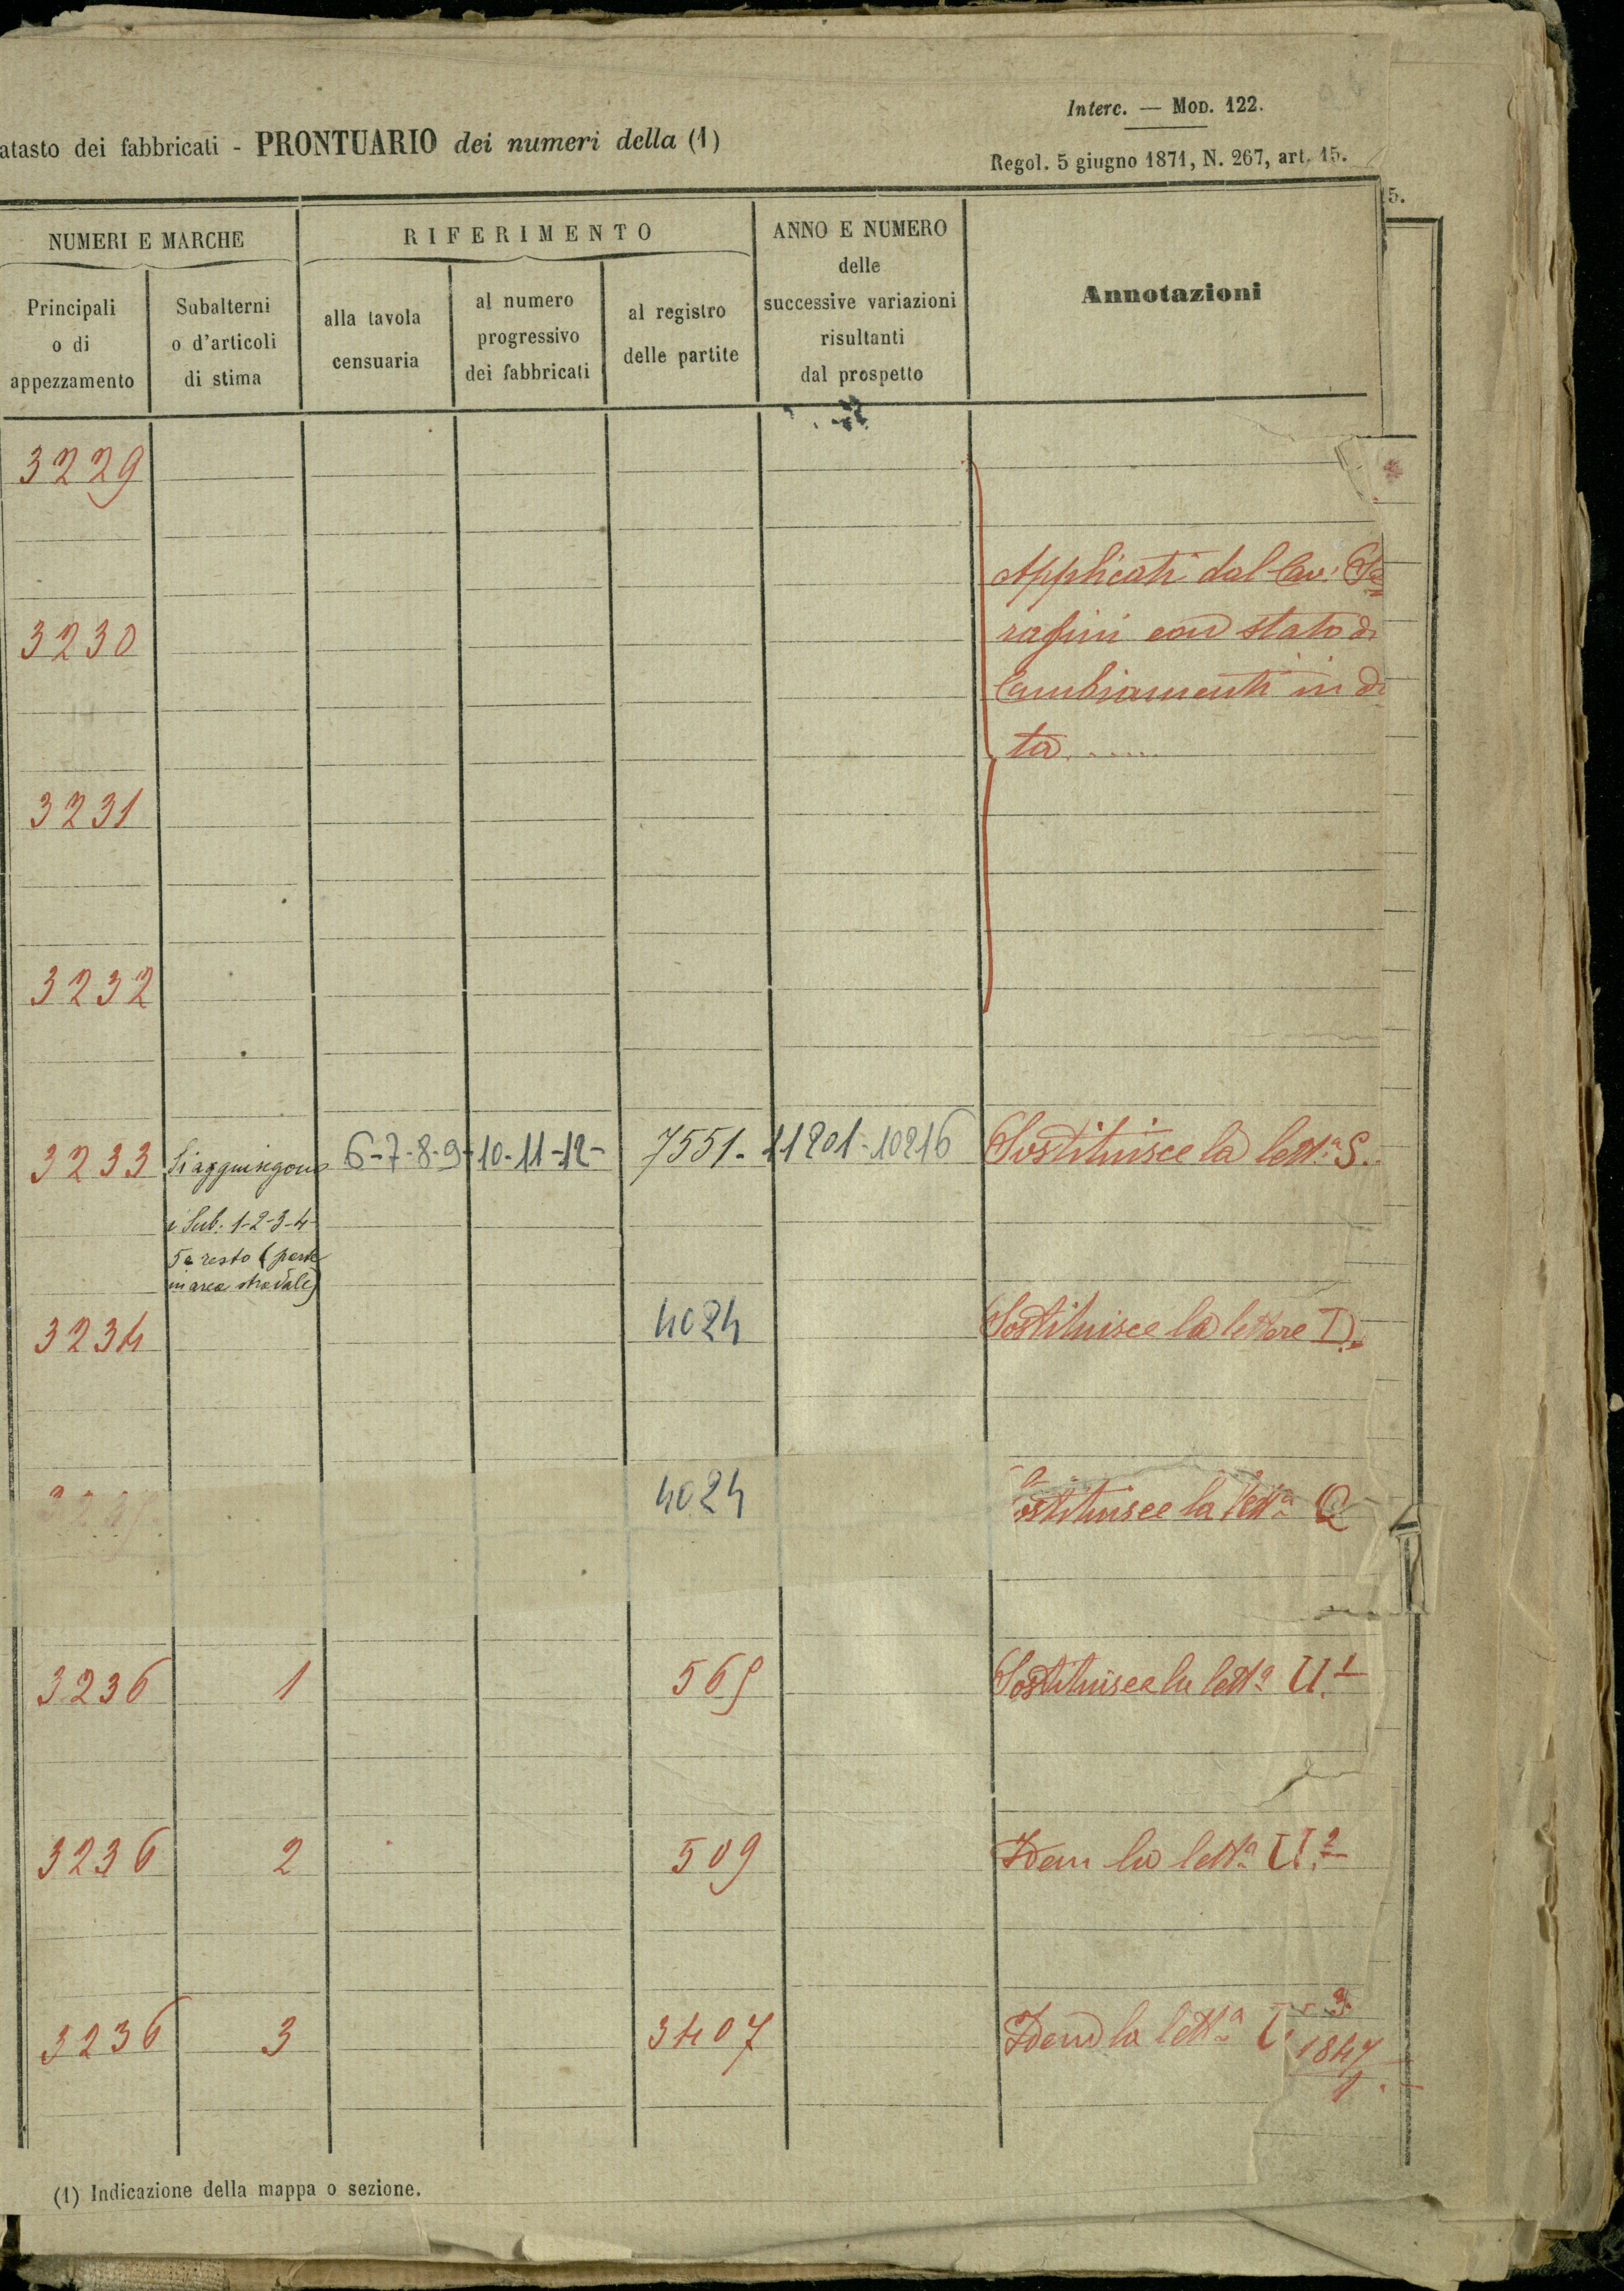 Interc. — MOD. 122.
atasto dei fabbricati - PRONTUARIO dei numeri della (1)
Regol. 5 giugno 1871, N. 267, art. 15.
5.
NUMERI E MARCHE
RIFERIMENTO
ANNO E NUMERO
delle
successive variazioni
risultanti
dal prospetto
Annotazioni
Principali
o di
appezzamento
Subalterni
o d'articoli
di stima
alla tavola
censuaria
al numero
progressivo
dei fabbricati
al registro
delle partite
3229
Applicati dal Cav.
rafini con stato di
3230
Cambiamenti in di
ta......
3231
3232
3233 Si aggiungono 6-7-8-9-10-11-12- 7551- 11201-10216 Sostituisce la lett.a S.
i Sub. 1-2-3-4-
5 e resto (parte
in area stradale)
3234 4024 Sostituisce la lettera D.
4024 ostituisce la lett.a Q
3236 1 569 Sostituisce la lett.a U.1
3236 2 509 Idem la lett.a U.2
3236 3 3407 Idem la lett.a
1847
1
(1) Indicazione della mappa o sezione.